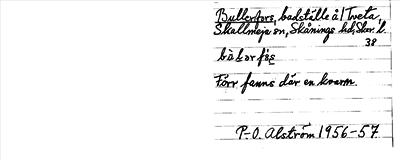 Bullerfors, badställe å 1 Tveta,
Skallmeja sn, Skånings hd, Skar. l.
38
bùlərfós
Förr fanns där en kvarn.
P.-O. Alström 1956-57